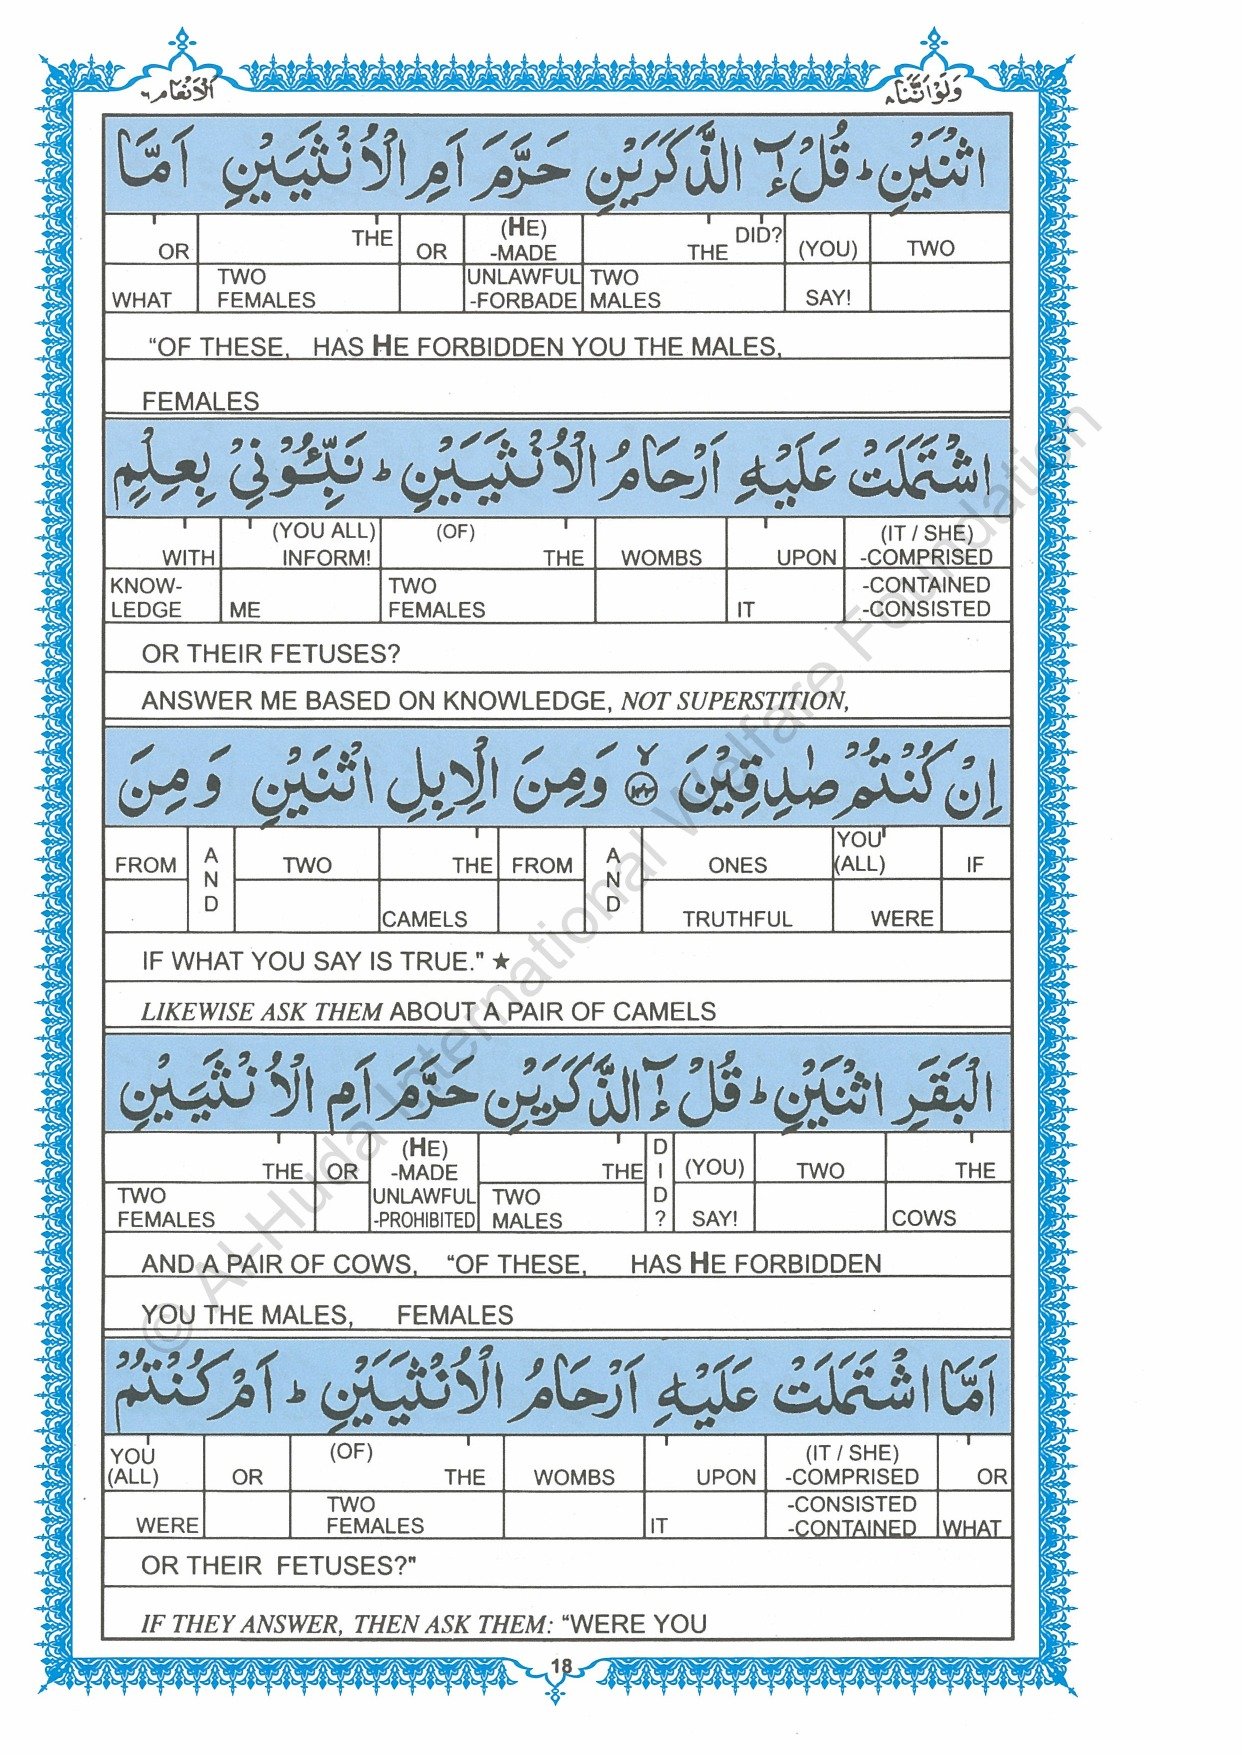 الانعام ٦
ولو اننا ٨
اثْنَيْنِ ؕ قُلْ ءٰٓالذَّكَرَيْنِ حَرَّمَ اَمِ الْاُنْثَيَيْنِ اَمَّا
OR THE OR (HE) -MADE THE DID? (YOU) TWO
WHAT TWO FEMALES UNLAWFUL -FORBADE TWO MALES SAY!
“OF THESE, HAS HE FORBIDDEN YOU THE MALES,
FEMALES
اشْتَمَلَتْ عَلَيْهِ اَرْحَامُ الْاُنْثَيَيْنِ ؕ نَبِّـُٔوْنِيْ بِعِلْمٍ
WITH (YOU ALL) INFORM! (OF) THE WOMBS UPON (IT / SHE) -COMPRISED
KNOW-LEDGE ME TWO FEMALES IT -CONTAINED -CONSISTED
OR THEIR FETUSES?
ANSWER ME BASED ON KNOWLEDGE, NOT SUPERSTITION,
اِنْ كُنْتُمْ صٰدِقِيْنَ ۙ ١٤٣ وَمِنَ الْاِبِلِ اثْنَيْنِ وَمِنَ
FROM AND TWO THE FROM AND ONES YOU (ALL) IF
CAMELS TRUTHFUL WERE
IF WHAT YOU SAY IS TRUE." ★
LIKEWISE ASK THEM ABOUT A PAIR OF CAMELS
الْبَقَرِ اثْنَيْنِ ؕ قُلْ ءٰٓالذَّكَرَيْنِ حَرَّمَ اَمِ الْاُنْثَيَيْنِ
THE OR (HE) -MADE THE DID? (YOU) TWO THE
TWO FEMALES UNLAWFUL -PROHIBITED TWO MALES SAY! COWS
AND A PAIR OF COWS, “OF THESE, HAS HE FORBIDDEN
YOU THE MALES, FEMALES
اَمَّا اشْتَمَلَتْ عَلَيْهِ اَرْحَامُ الْاُنْثَيَيْنِ ؕ اَمْ كُنْتُمْ
YOU (ALL) OR (OF) THE WOMBS UPON (IT / SHE) -COMPRISED OR
WERE TWO FEMALES IT -CONSISTED -CONTAINED WHAT
OR THEIR FETUSES?"
IF THEY ANSWER, THEN ASK THEM: “WERE YOU
18
© Al-Huda International Welfare Foundation